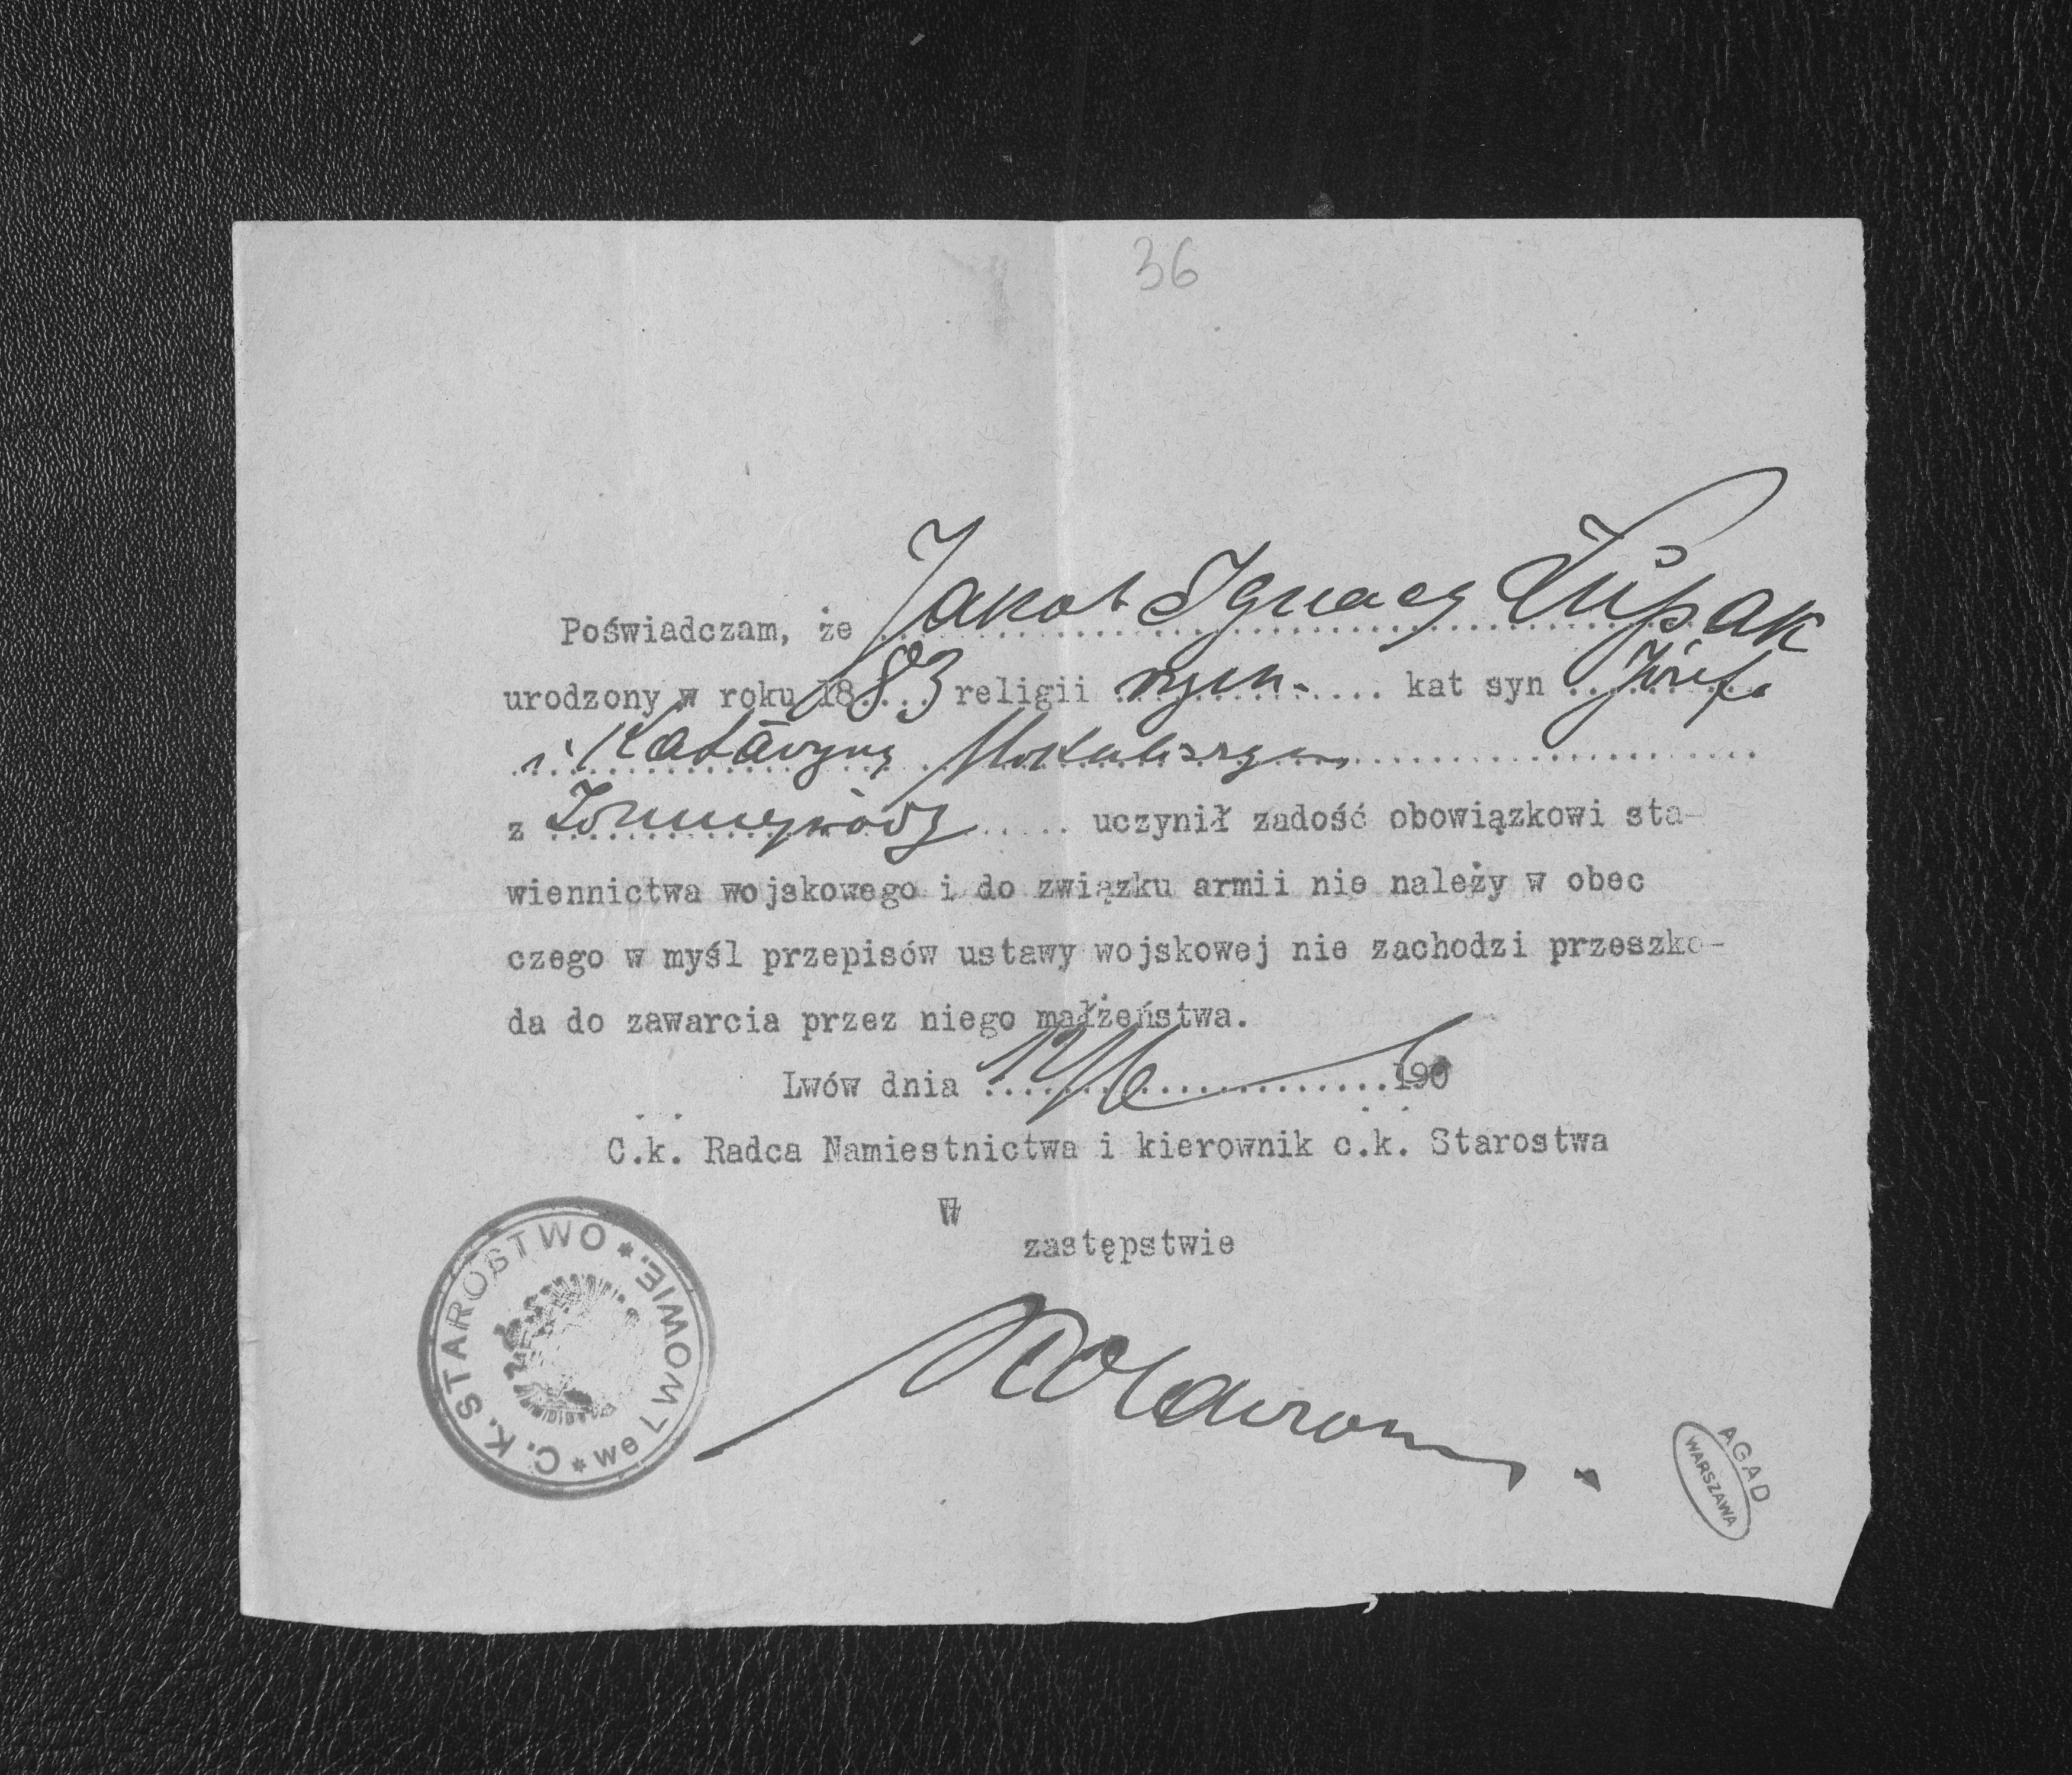 36
Poświadczam, że Jakob Ignacy Łupak
urodzony w roku 1883 religii rzym. kat syn Józefa
i Katarzyny
z Zimnejwody uczynił zadość obowiązkowi sta-
wiennictwa wojskowego i do związku armii nie należy w obec
czego w myśl przepisów ustawy wojskowej nie zachodzi przeszko-
da do zawarcia przez niego małżeństwa.
Lwów dnia 12/6 190
C.k. Radca Namiestnictwa i kierownik c.k. Starostwa
W
zastępstwie
C. K. STAROSTWO * we LWOWIE. *
AGAD
WARSZAWA